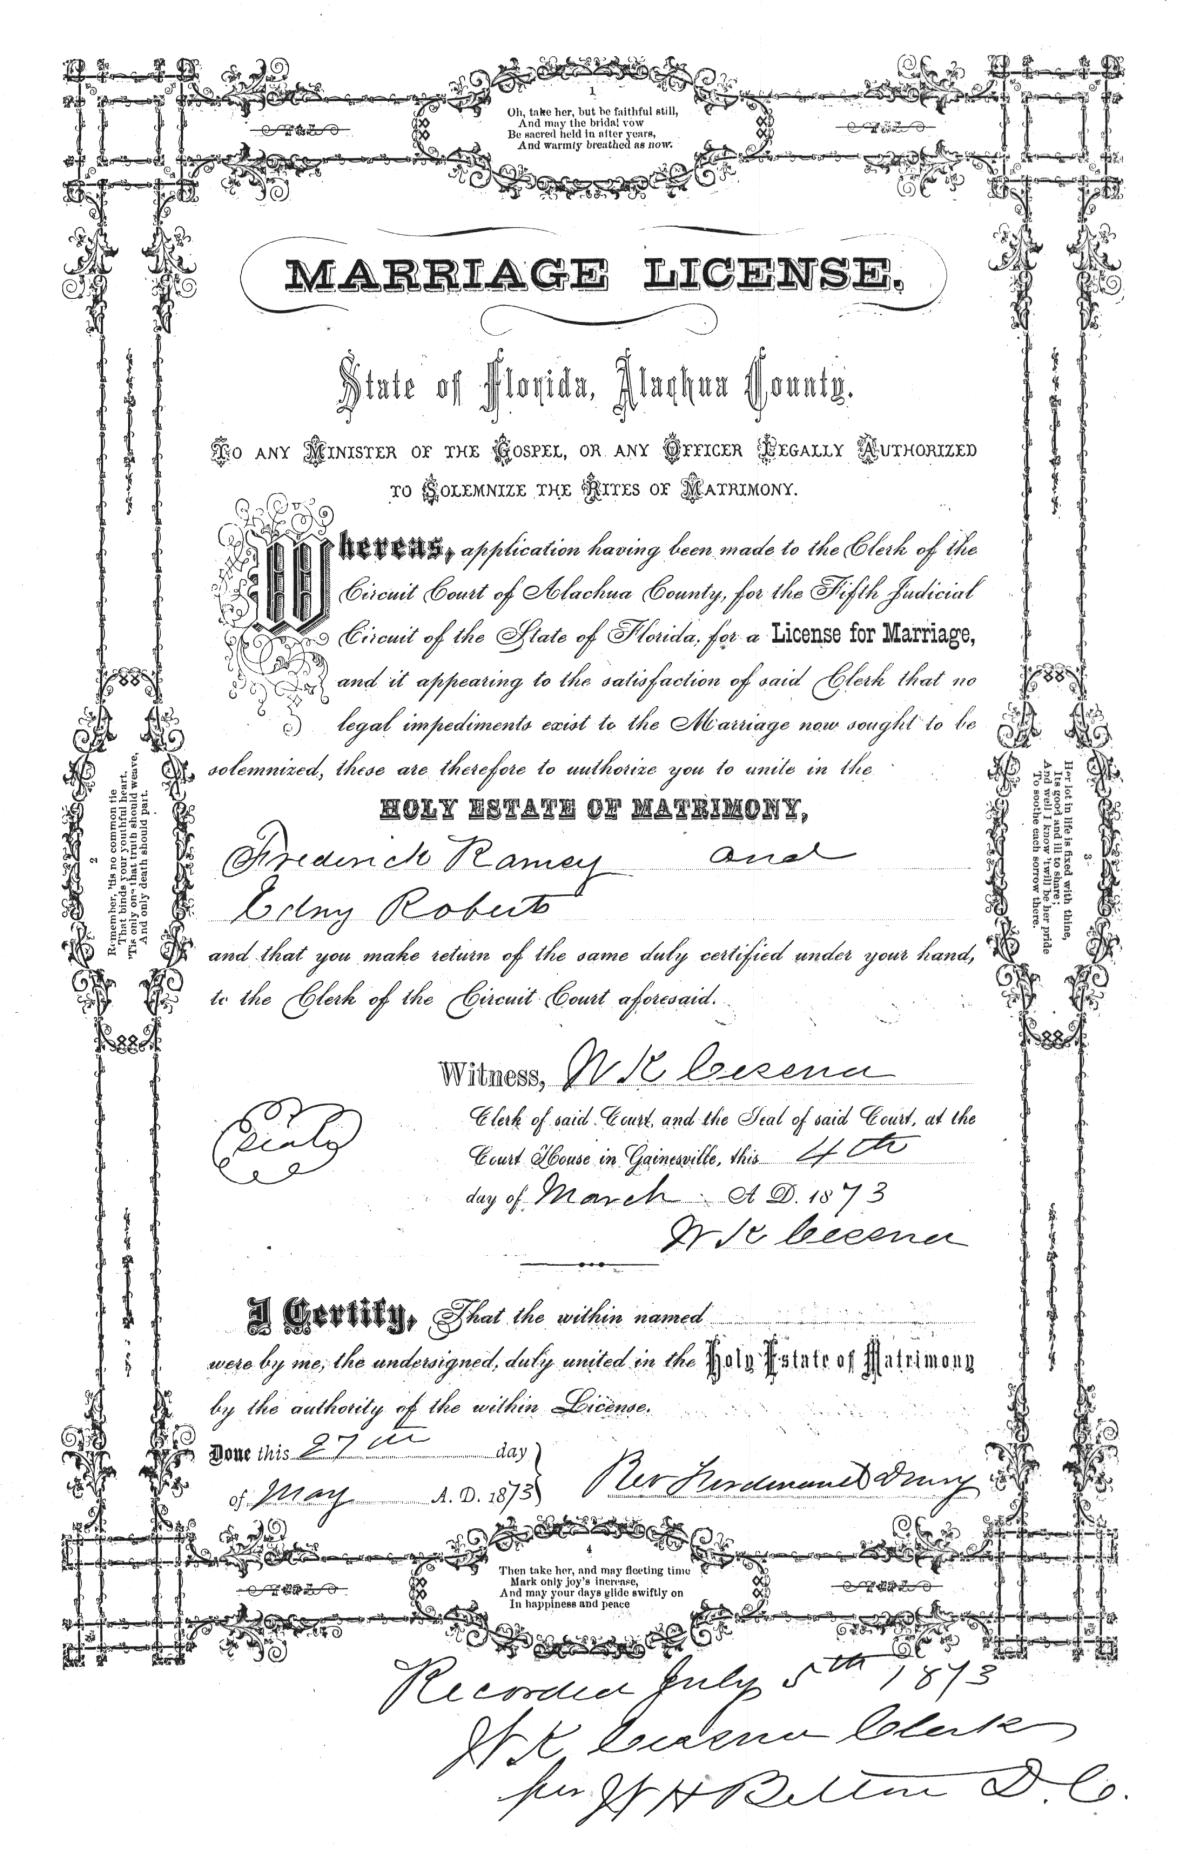 1
Oh, take her, but be faithful still,
And may the bridal vow
Be sacred held in after years,
And warmly breathed as now.
MARRIAGE LICENSE.
State of Florida, Alachua County.
TO ANY MINISTER OF THE GOSPEL, OR ANY OFFICER LEGALLY AUTHORIZED
TO SOLEMNIZE THE RITES OF MATRIMONY.
Whereas, application having been made to the Clerk of the
Circuit Court of Alachua County, for the Fifth Judicial
Circuit of the State of Florida, for a License for Marriage,
and it appearing to the satisfaction of said Clerk that no
legal impediments exist to the Marriage now sought to be
solemnized, these are therefore to authorize you to unite in the
HOLY ESTATE OF MATRIMONY,
Frederick Ramey and
Edny Roberts
and that you make return of the same duly certified under your hand,
to the Clerk of the Circuit Court aforesaid.
Witness, W K Cessna
Clerk of said Court, and the Seal of said Court, at the
Court House in Gainesville, this 4th
day of March A D. 1873
W K Cessna
Seal
I Certify, That the within named
were by me, the undersigned, duly united in the Holy Estate of Matrimony
by the authority of the within License.
Done this 27th day
of May A. D. 1873
Rev
2
Remember, 'tis no common tie
That binds your youthful heart,
'Tis only one that truth should weave,
And only death should part.
3
Her lot in life is fixed with thine,
Its good and ill to share;
And well I know 'twill be her pride
To soothe each sorrow there.
4
Then take her, and may fleeting time
Mark only joy's increase,
And may your days glide swiftly on
In happiness and peace
Recorded July 5th 1873
W K Cessna Clerk
per W H Belton D. C.